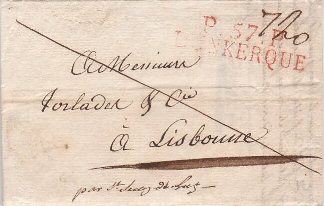 P. 57 P.
DUNKERQUE
A Messieurs
Torlades & Cie
à Lisbonne
par St Jean de Luz